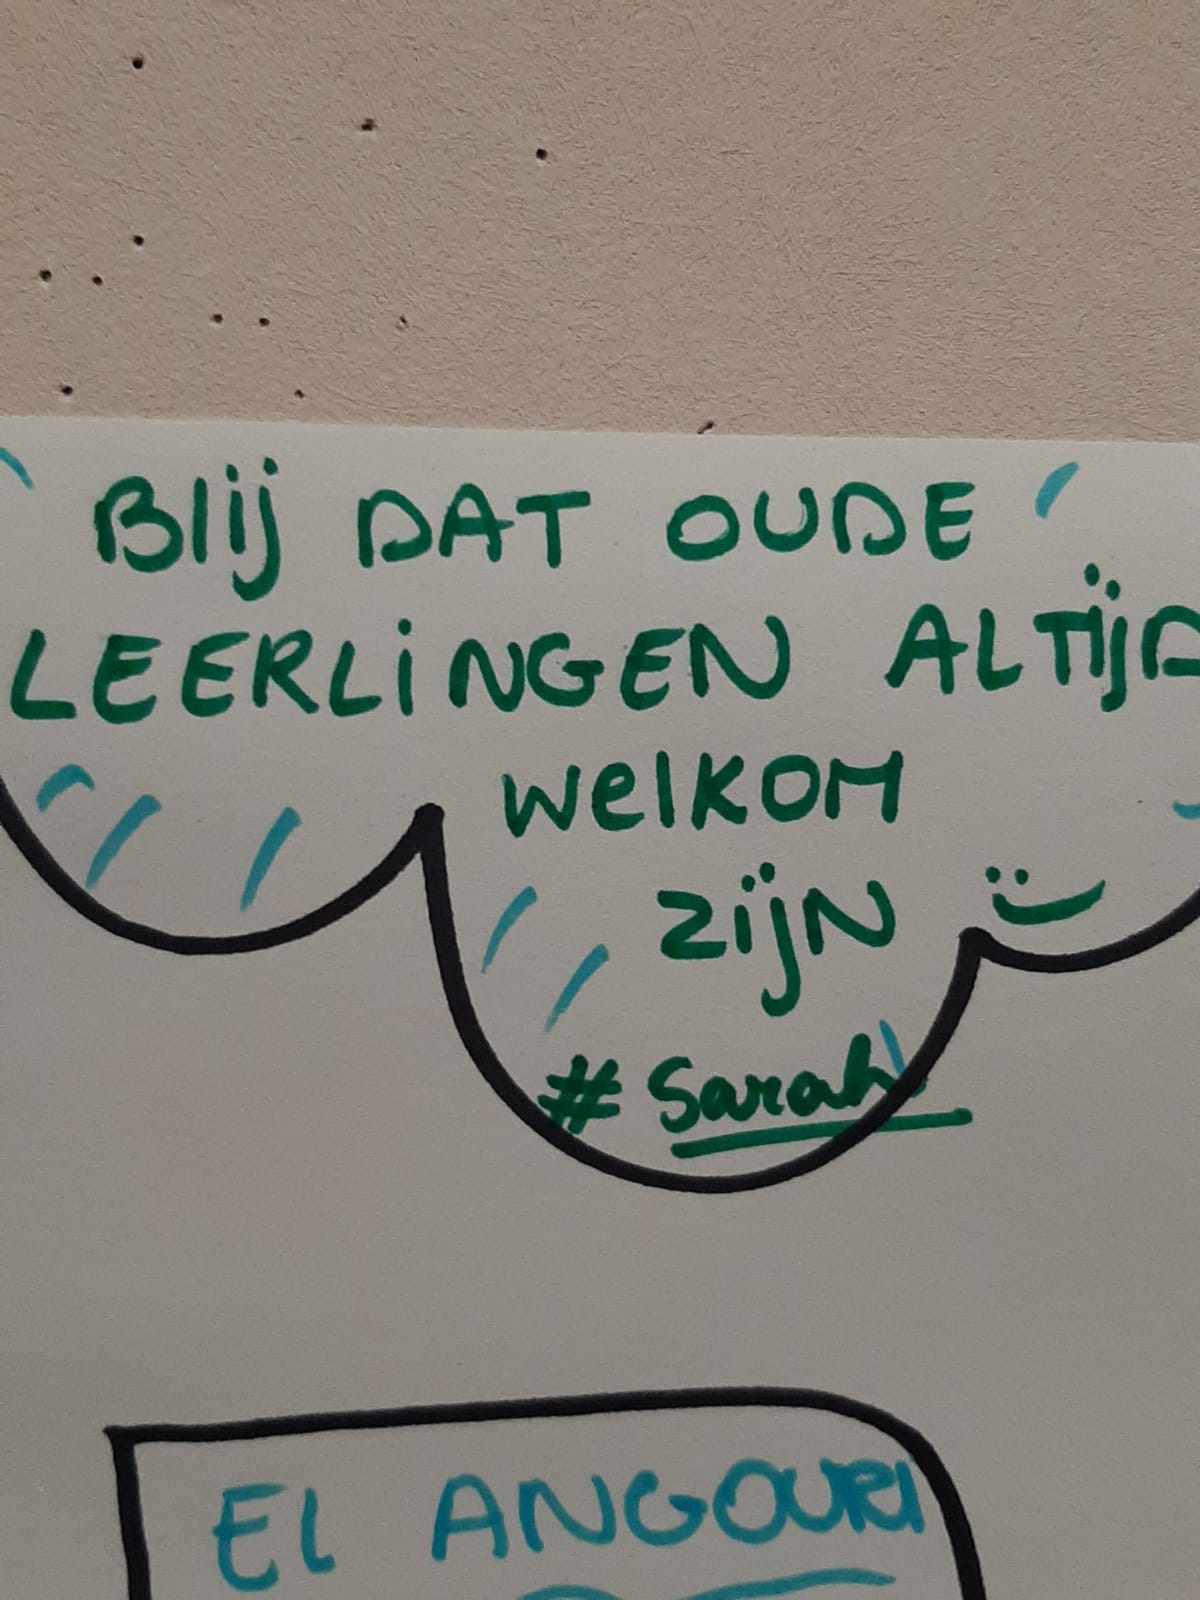 Blij DAT OUDE
LEERLiNGEN ALTijD
WelKOM
ZijN
# Sarah
El ANGOURI